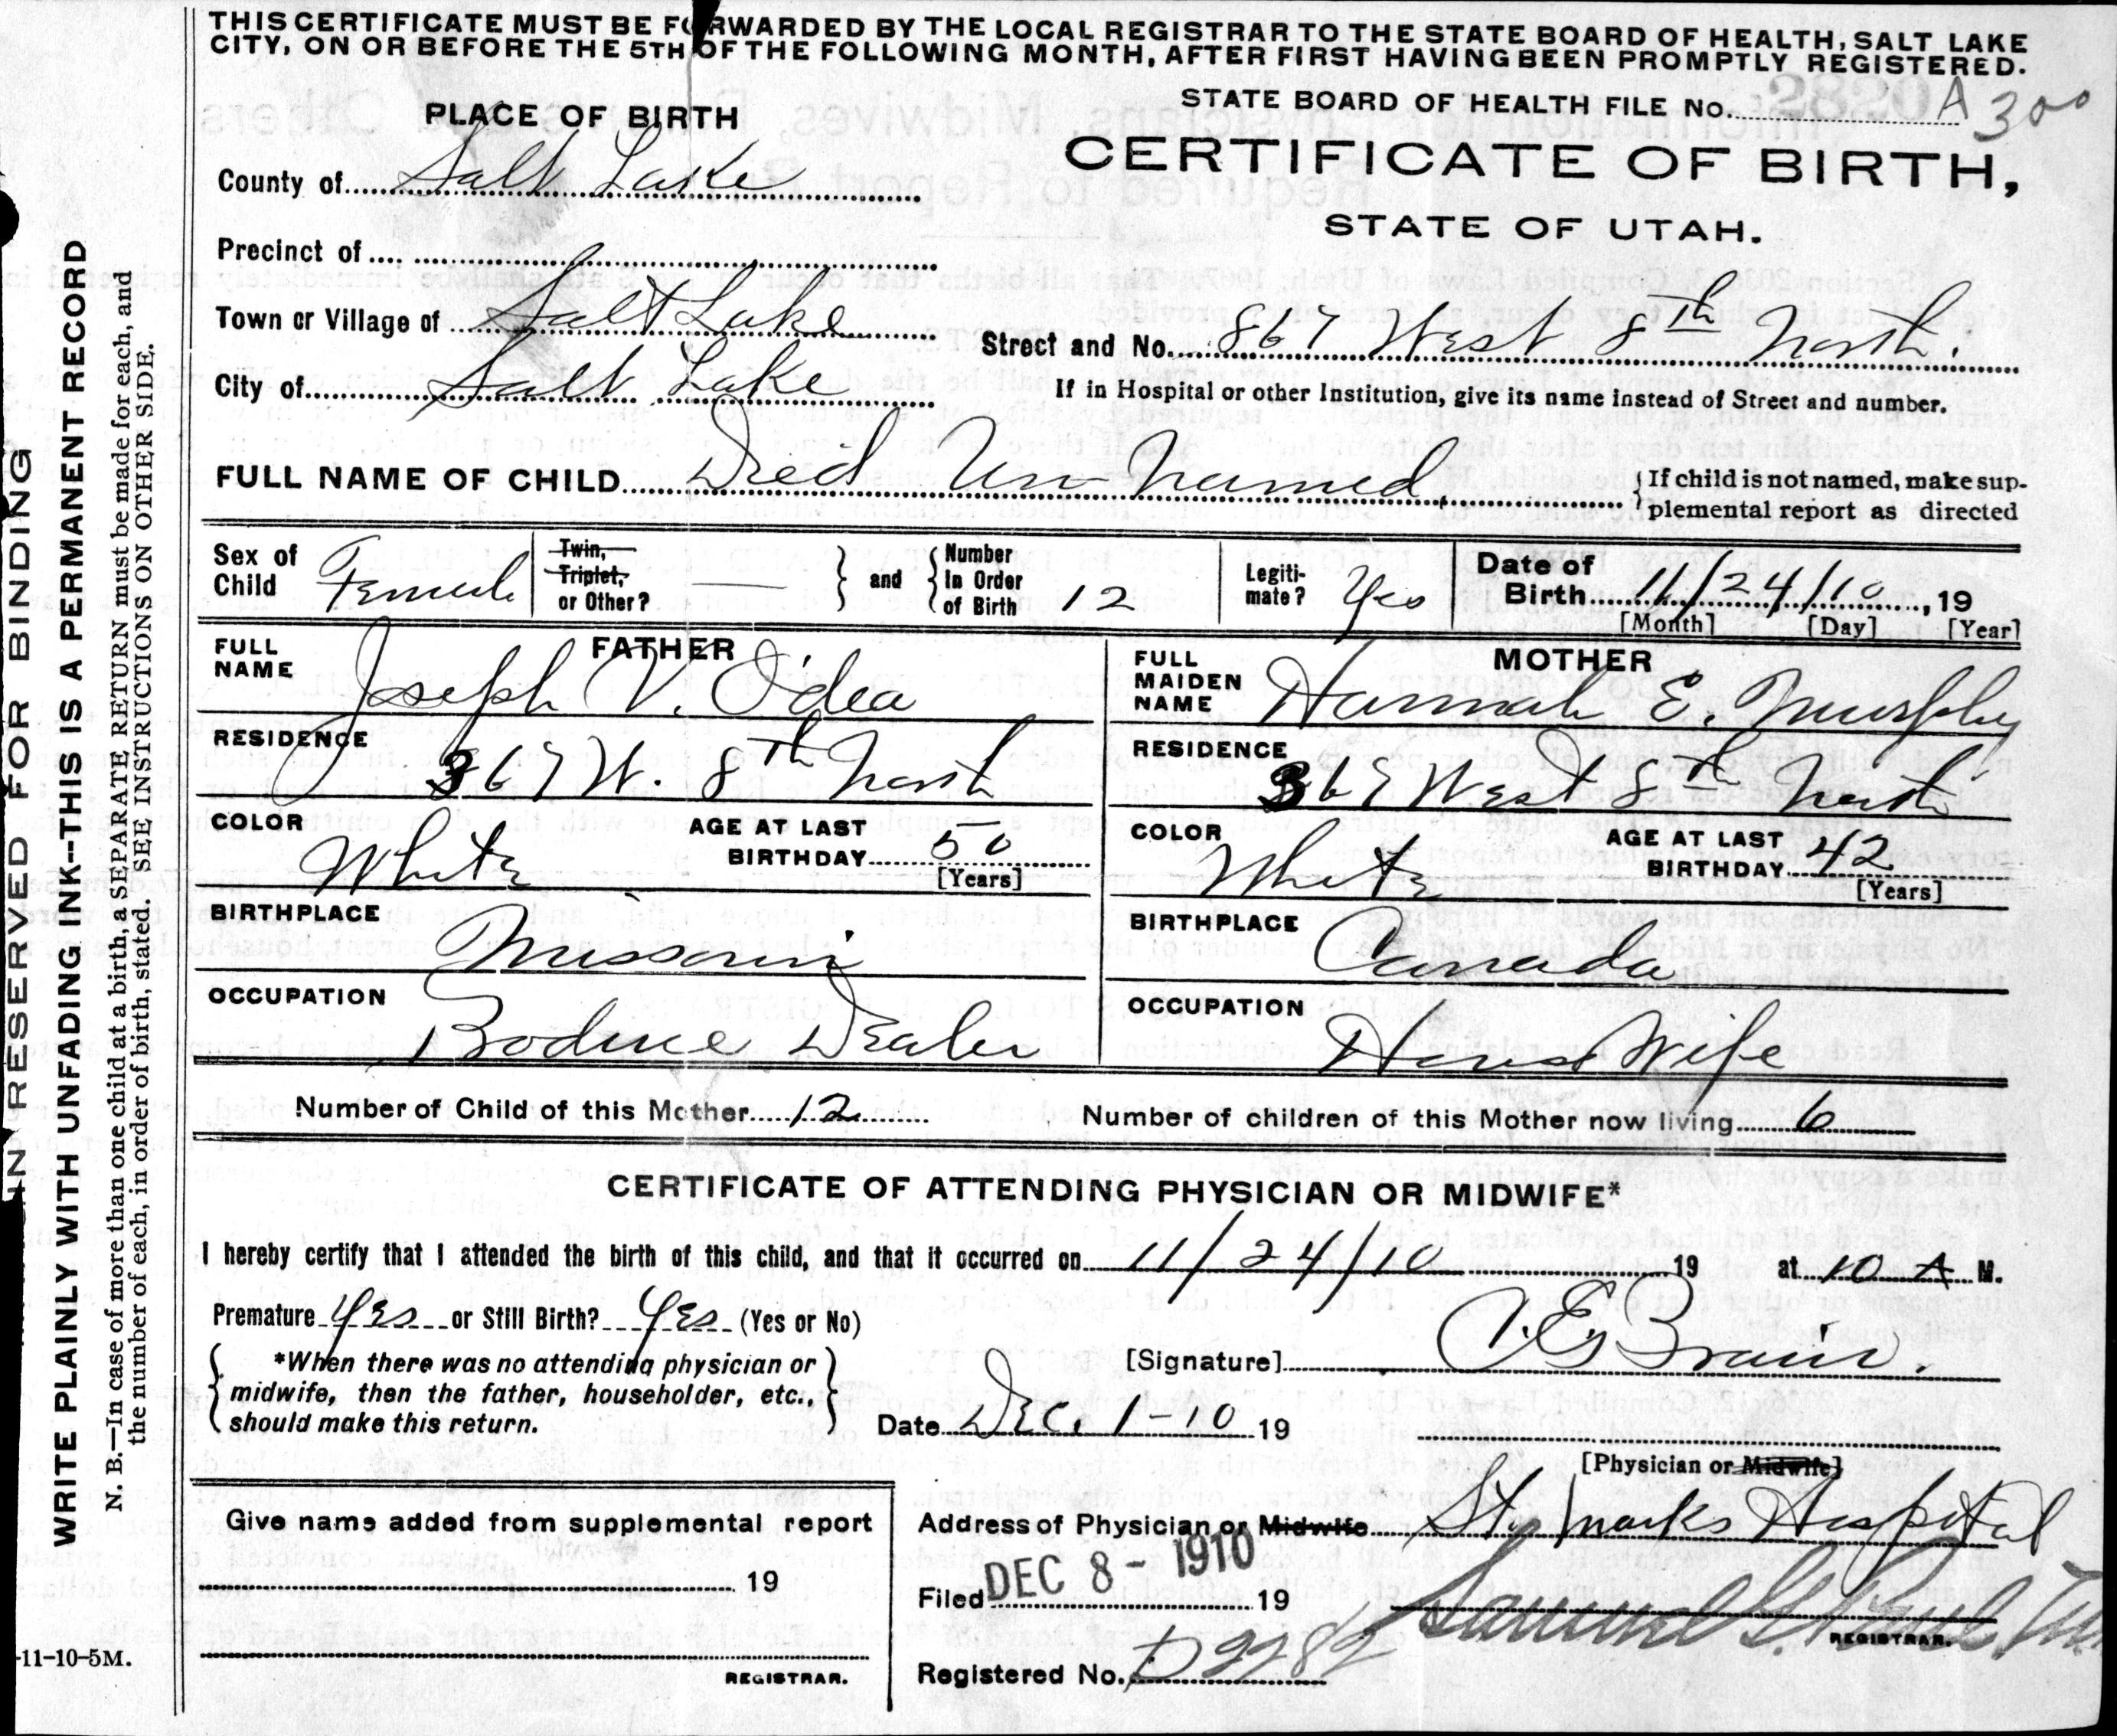 THIS CERTIFICATE MUST BE FORWARDED BY THE LOCAL REGISTRAR TO THE STATE BOARD OF HEALTH, SALT LAKE
CITY, ON OR BEFORE THE 5TH OF THE FOLLOWING MONTH, AFTER FIRST HAVING BEEN PROMPTLY REGISTERED.
STATE BOARD OF HEALTH FILE No. 2820 A 300
PLACE OF BIRTH
CERTIFICATE OF BIRTH,
STATE OF UTAH.
County of Salt Lake
Precinct of
Town or Village of Salt Lake
Street and No. 867 West 8th North.
City of Salt Lake
If in Hospital or other Institution, give its name instead of Street and number.
FULL NAME OF CHILD Died Un-Named.
{If child is not named, make sup-
plemental report as directed
Sex of Child Female
Twin, Triplet, or Other? — } and { Number In Order of Birth 12
Legiti-mate? Yes
Date of Birth 11/24/10, 19
[Month] [Day] [Year]
FATHER
FULL NAME Joseph V. O'dea
RESIDENCE 367 W. 8th North
COLOR White
AGE AT LAST BIRTHDAY 50
[Years]
BIRTHPLACE Missouri
OCCUPATION Dealer
MOTHER
FULL MAIDEN NAME Hannah E. Murphy
RESIDENCE 367 West 8th North
COLOR White
AGE AT LAST BIRTHDAY 42
[Years]
BIRTHPLACE Canada
OCCUPATION House Wife
Number of Child of this Mother 12
Number of children of this Mother now living 6
CERTIFICATE OF ATTENDING PHYSICIAN OR MIDWIFE*
I hereby certify that I attended the birth of this child, and that it occurred on 11/24/10 19 at 10 A M.
Premature Yes or Still Birth? Yes (Yes or No)
*When there was no attending physician or
midwife, then the father, householder, etc.,
should make this return.
[Signature]
Date Dec. 1-10 19
[Physician or Midwife]
Address of Physician or Midwife St Marks Hospital
Filed DEC 8 - 1910 19
REGISTRAR.
Registered No. D2282
Give name added from supplemental report
19
REGISTRAR.
-11-10-5M.
IN RESERVED FOR BINDING
WRITE PLAINLY WITH UNFADING INK--THIS IS A PERMANENT RECORD
N. B.—In case of more than one child at a birth, a SEPARATE RETURN must be made for each, and
the number of each, in order of birth, stated. SEE INSTRUCTIONS ON OTHER SIDE.